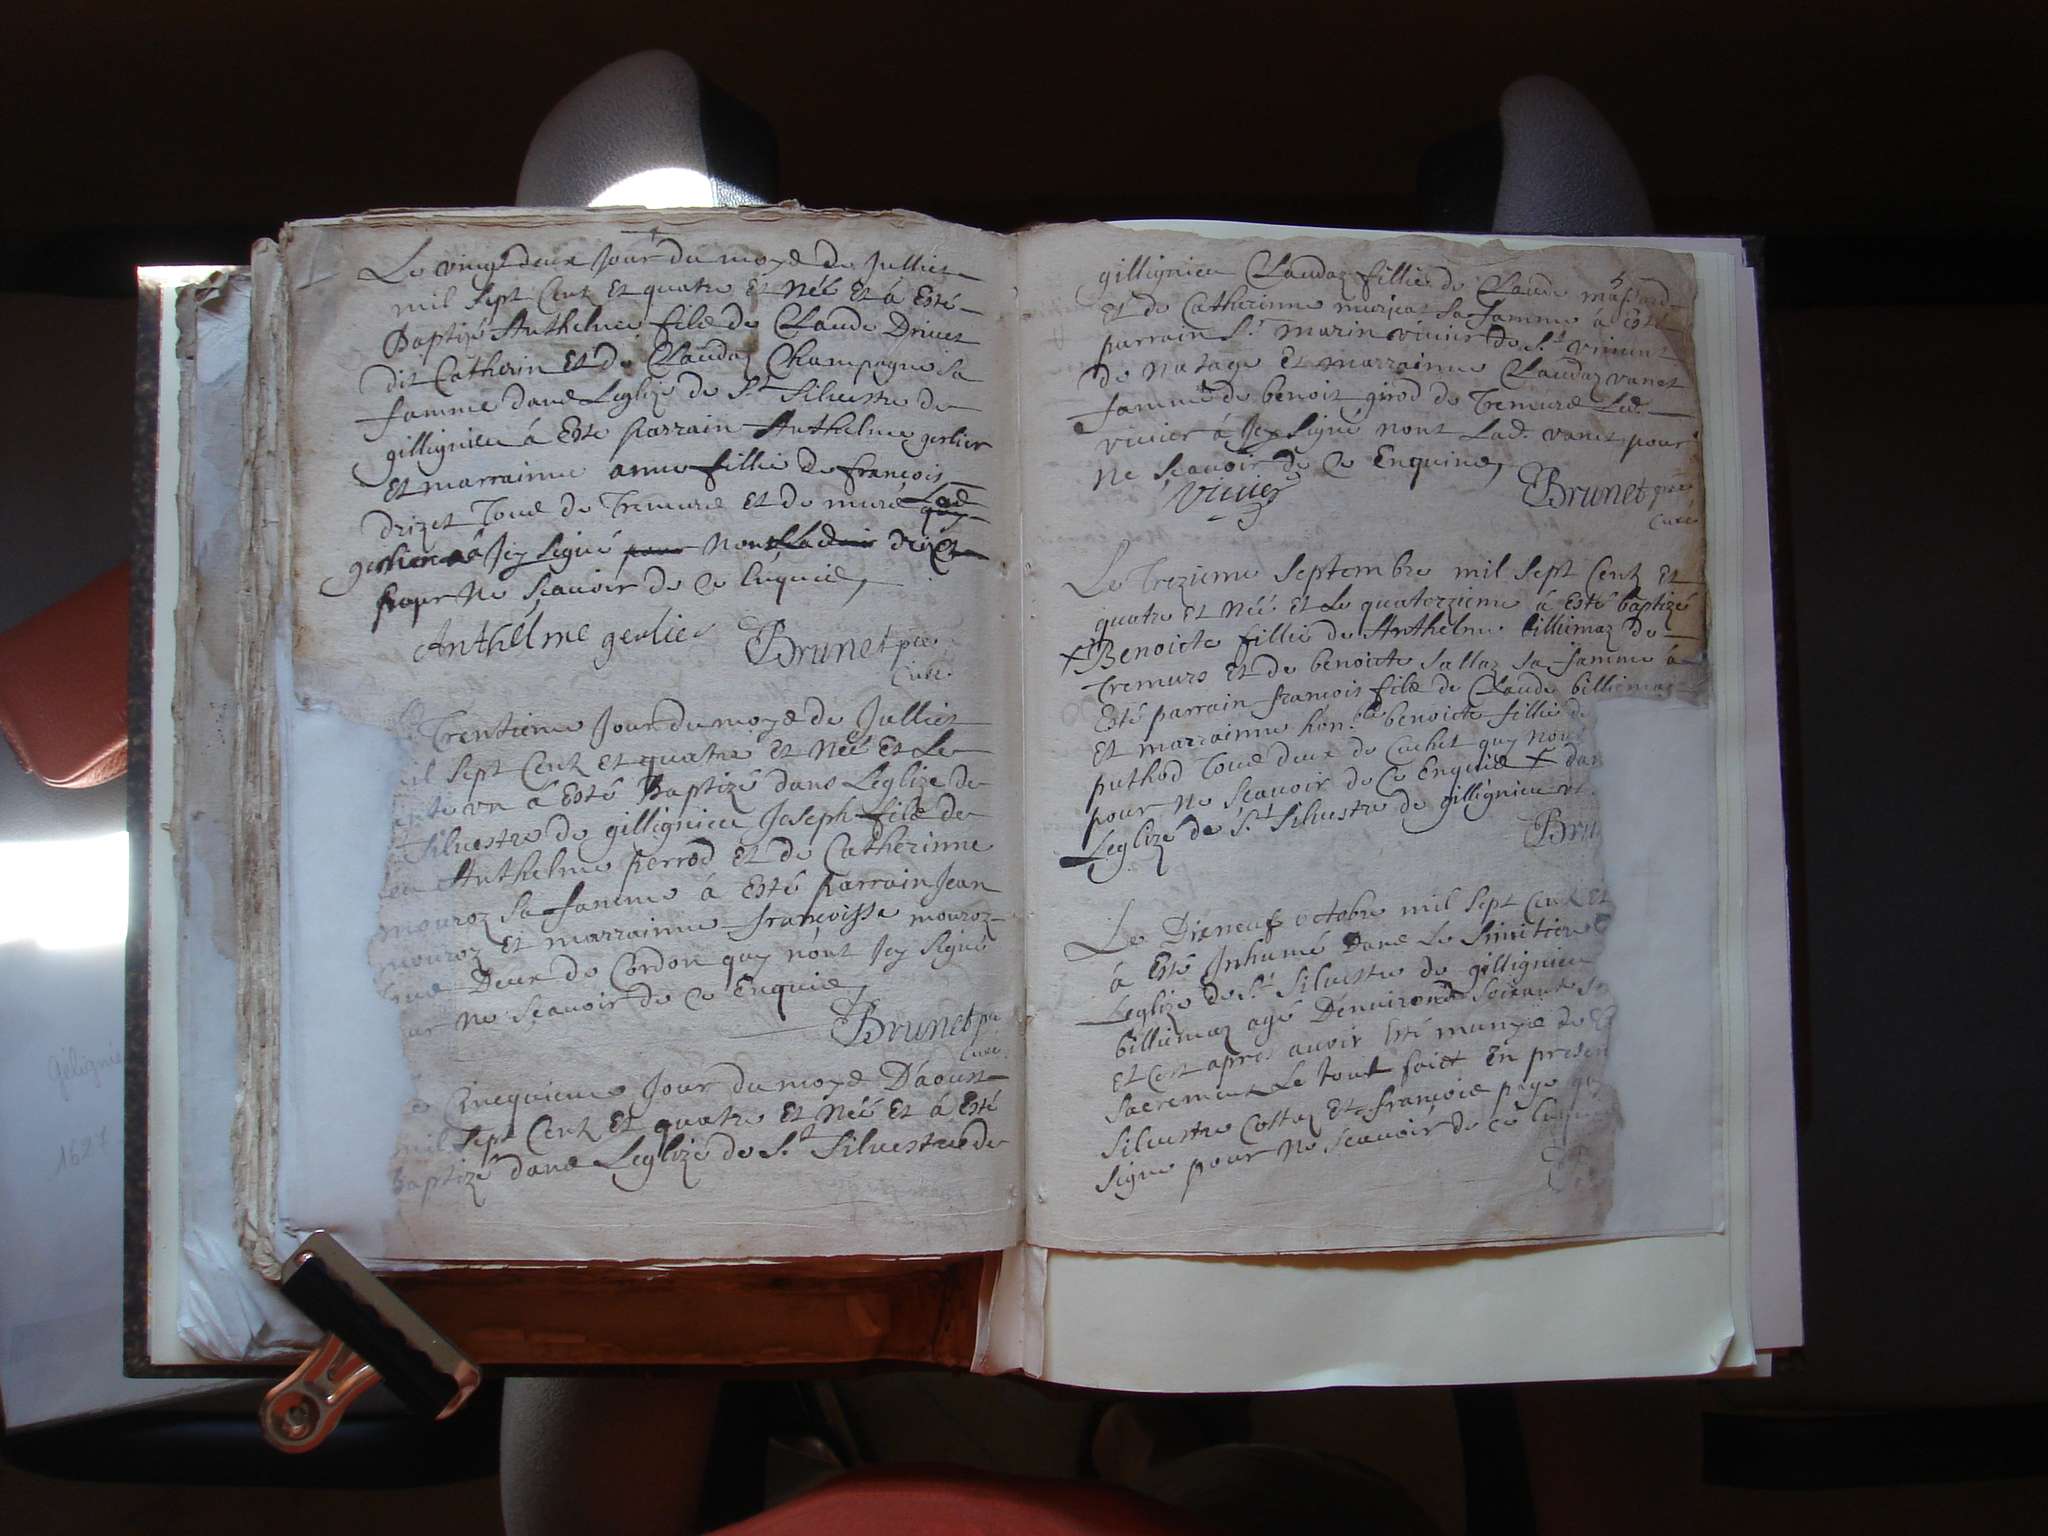 Le vingt deux Jour du moys de Julliet
mil Sept Cent Et quatre Et Néé Et à Esté
Baptizé Anthelme fils de Claude Drivet
dit Catherin Et de Claudaz Champagne sa
famme dans Leglize de St Silvestre de
gillignieu à Esté Parrain Anthelme gerlier
Et marrainne anne fillie de françois
drizet Tous de Tremurs Et de murs
gerlier à Icy Signé nont drizet
pour Ne Scavoir de ce Enquis,
Anthélme gerlier Brunet pre
Curé
Trentieme Jour du moys de Julliet
mil Sept Cent Et quatre Et Néé Et Le
trente vn à Esté Baptizé dans Leglize de
St Silvestre de gillignieu Joseph fils de
Anthelme perrod Et de Catherinne
mouroz Sa famme à Esté Parrain Jean
mouroz Et marrainne francoisse mouroz
tous Deux de Cordon quy nont Icy Signé
pour Ne Scavoir de ce Enquis,
Brunet pre
Curé
Cincquieme Jour du moys Daoust
mil Sept Cent Et quatre Et Néé Et à Esté
Baptizé dans Leglize de St Silvestre de
gillignieu Claudaz fillie de Claude
Et de Catherinne sa famme à Esté
parrain Sr marin vivier de St
de Et marrainne Claudaz vanet
famme de benoit girod de Tremurs Led.
vivier à Icy Signé nont Lad. vanet pour
Ne Scavoir de ce Enquise,
Vivier Brunet pre
Curé
Le Trezieme Septembre mil Sept Cent Et
quatre Et Néé Et Le quatorzieme à Esté baptizé
+ Benoicte fillie de Anthelme billiemaz de
Tremurs Et de benoicte sallaz sa famme à
Esté parrain francois fils de Claude billiemaz
Et marrainne hon.ble benoicte fillie de
puthod Tous deux de Cuchet quy nont
pour Ne Scavoir de ce Enquis + dans
Leglize de St Silvestre de gillignieu
Bru
Le Dixneuf octobre mil Sept Cent Et
à Esté Inhumé Dans Le Simitiere
Leglize de St Silvestre de gillignieu
billiemaz agé Denviron Soixante
Et Cest apres auoir Esté munys de
Sacrement Le tout faict En presen
Silvestre Costaz Et françois
Signe pour Ne Scavoir de ce Enquis
Gélignieu